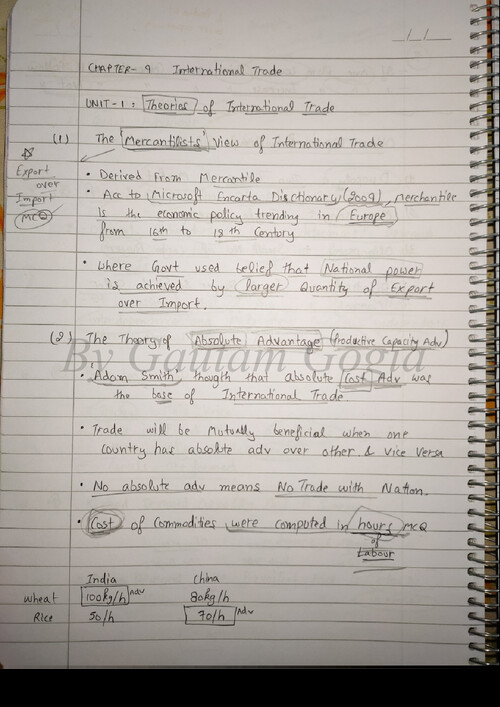 CHAPTER- 9 International Trade
UNIT-1: Theories of International Trade
(1) The 'Mercantilists' View of International Trade
Export
over
Import
MCQ
• Derived From Mercantile
• Acc to Microsoft Encarta Disctionary (2009), Merchantile
Is the economic policy trending in Europe
from 16th to 18th Century
• Where Govt used belief that National power
is achieved by larger Quantity of Export
over Import.
(2) The Theory of Absolute Advantage (Productive Capacity Adv)
By Gautam Gogia
• 'Adam Smith' though that absolute Cost Adv was
the base of International Trade
• Trade will be Mutually beneficial when one
Country has absolute adv over other & Vice Versa
• No absolute adv means No Trade with Nation.
• Cost of Commodities were computed in hours MCQ
of
Labour
India China
Wheat 100kg/h Adv 80kg/h
Rice 50/h 70/h Adv